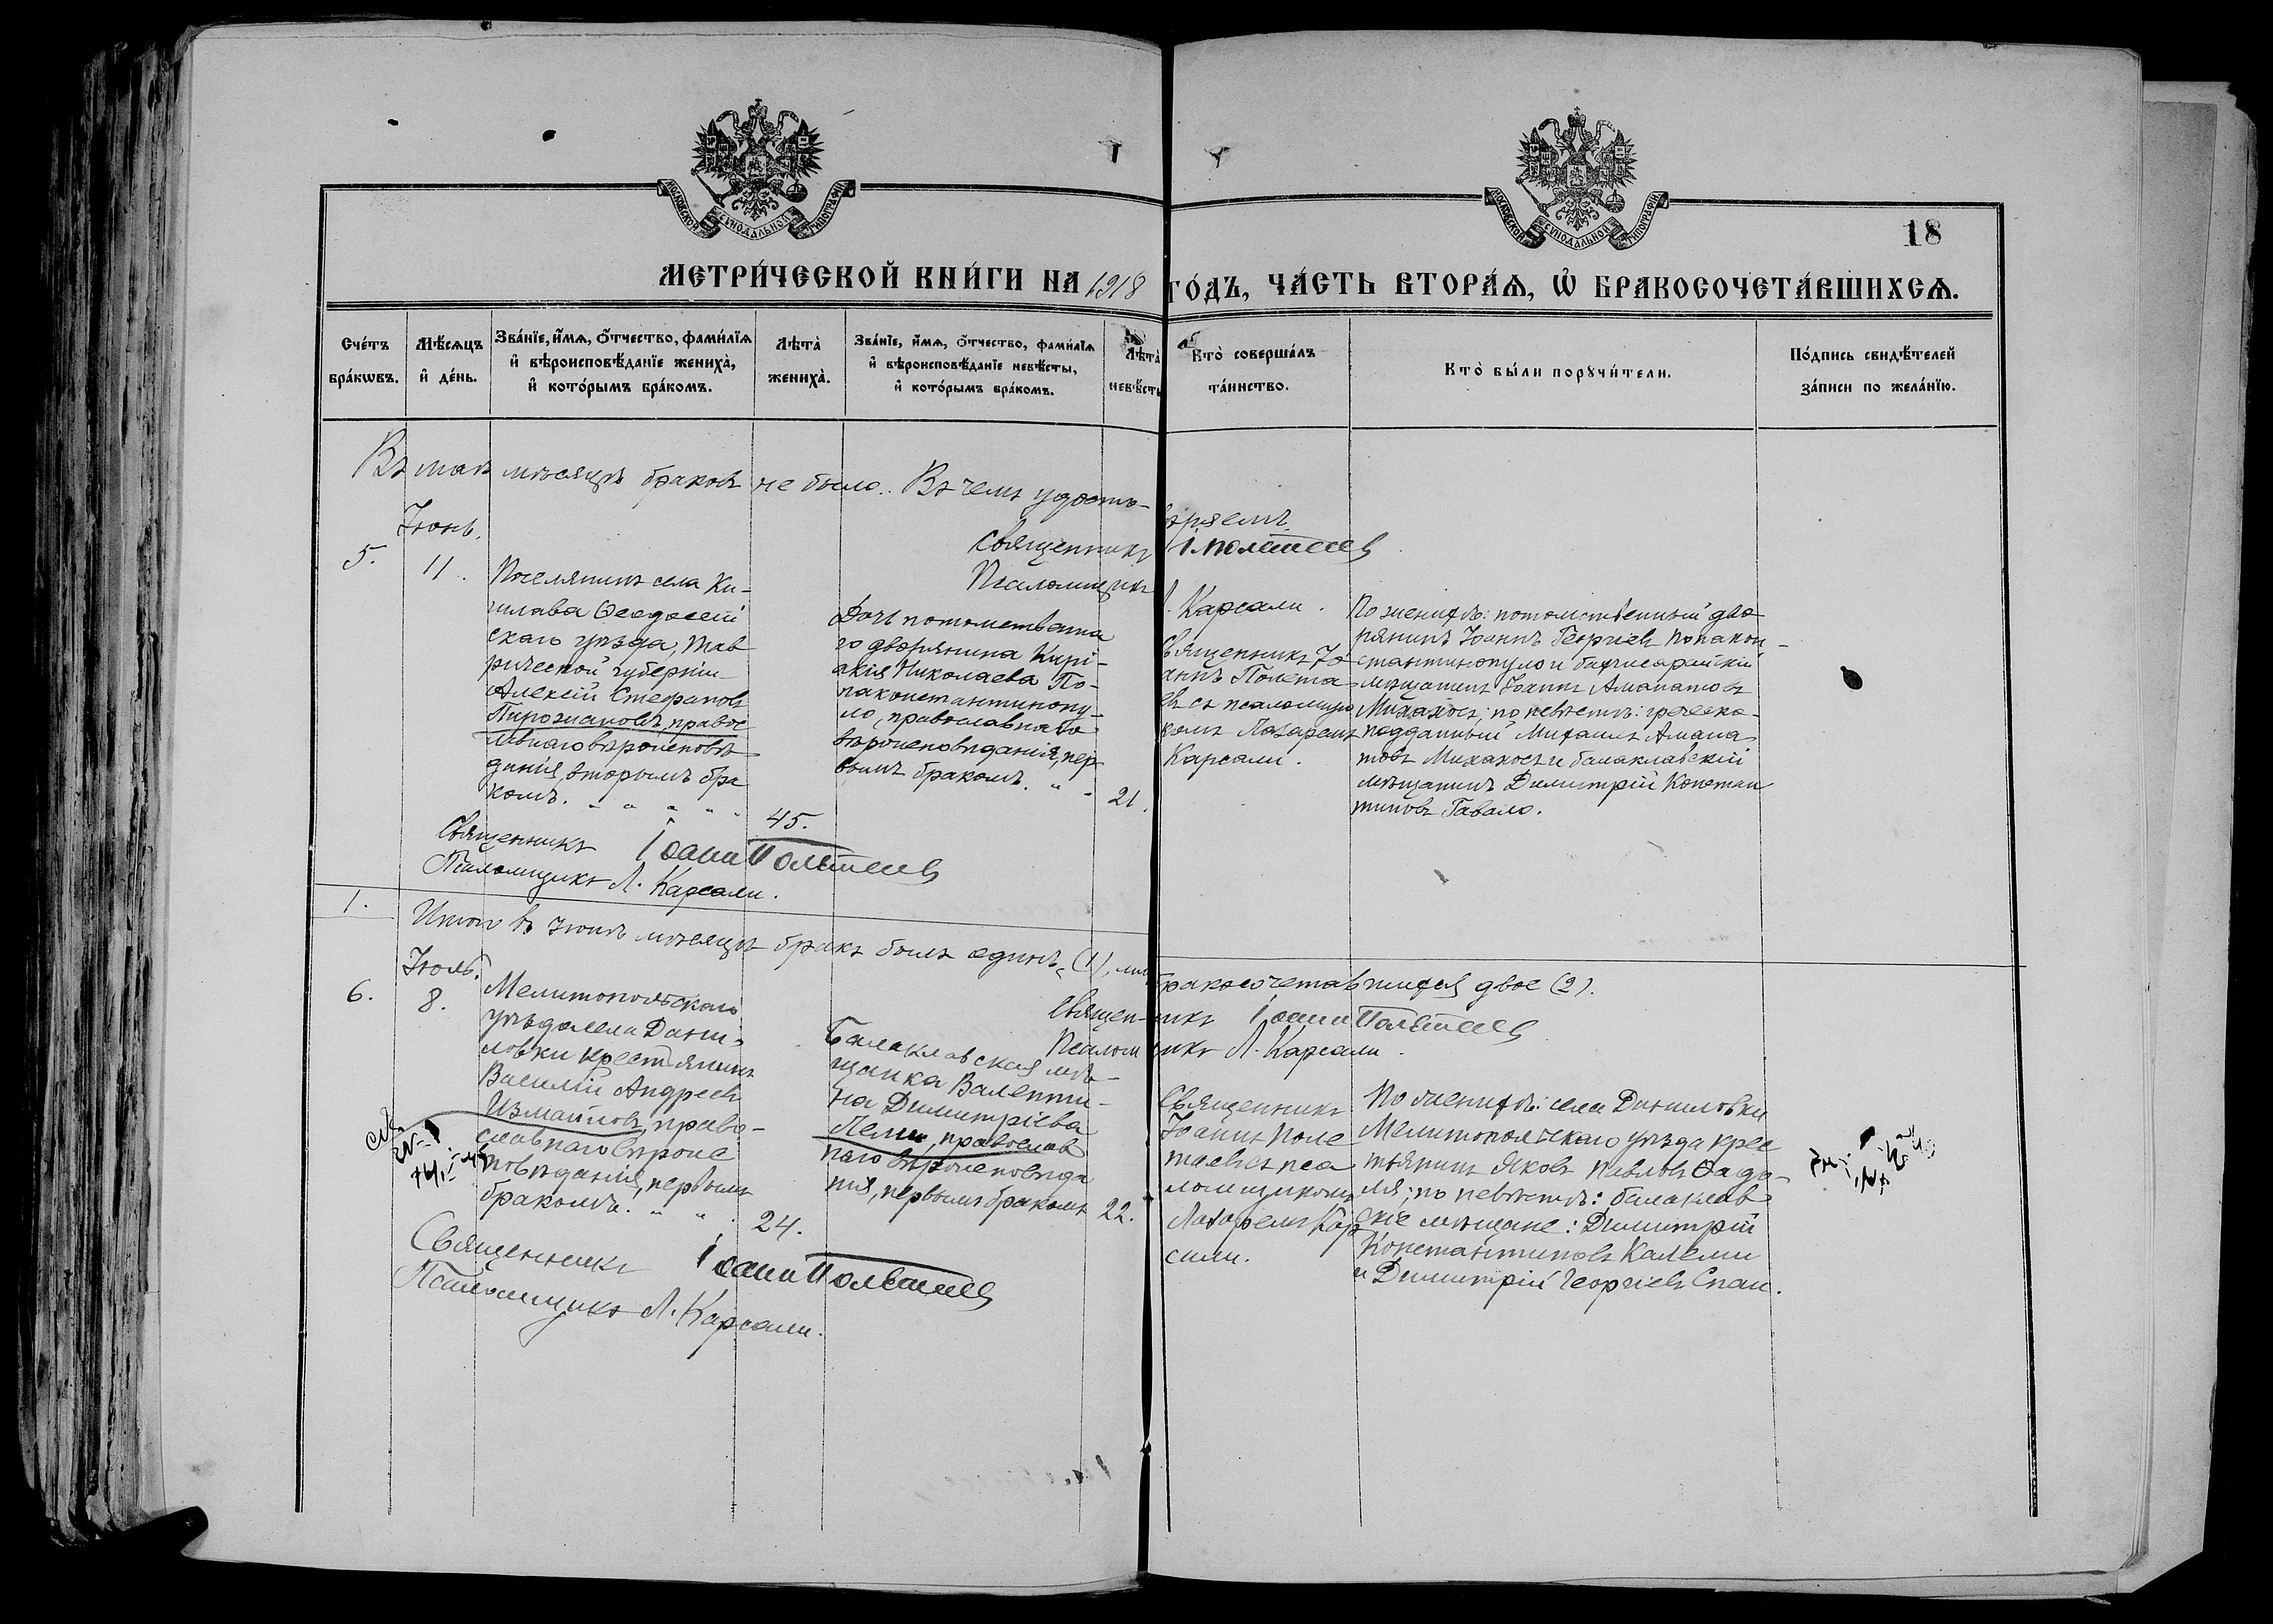 МОСКОВСКОЙ СѴНОДАЛЬНОЙ ТИПОГРАФІИ
МОСКОВСКОЙ СѴНОДАЛЬНОЙ ТИПОГРАФІИ
18
МЕТРИ́ЧЕСКОЙ КНИ́ГИ НА 1918 ГО́ДЪ, ЧА́СТЬ ВТОРА́Ѧ, Ѡ҆ БРАКОСОЧЕТА́ВШИХСѦ.
Сче́тъ
бра́кѡвъ.
Мѣ́сѧцъ
и҆ де́нь.
Зва́нїе, и҆́мѧ, ѻ҆́тчество, фами́лїѧ
и҆ вѣроисповѣ́данїе жениха̀,
и҆ кото́рымъ бра́комъ.
Лѣта̀
жениха̀.
Зва́нїе, и҆́мѧ, ѻ҆́тчество, фами́лїѧ
и҆ вѣроисповѣ́данїе невѣ́сты,
и҆ кото́рымъ бра́комъ.
Лѣта̀
невѣ́сты
Кто̀ соверша́лъ
та́инство.
Кто̀ бы́ли порꙋчи́тели.
По́дпись свидѣ́телей
за́писи по жела́нїю.
Въ маѣ мѣсяцѣ браковъ не было. Въ чемъ удосто-
вѣряемъ.
Священникъ І. Полетаевъ
Псаломщикъ Л. Карсали.
Іюнь.
5.
11.
Поселянинъ села Ки-
шлава Ѳеодосій
скаго уѣзда, Тав
рической губерніи
Алексій Стефановъ
Пирожановъ, правос
лавнаго вѣроисповѣ
данія, вторымъ бра
комъ.
45.
Дочь потомственна
го дворянина Кирі-
акія Николаева По-
паконстантинопу-
ло, православнаго
вѣроисповѣданія, пер
вымъ бракомъ.
21.
Священникъ Іо
аннъ Полета
евъ съ псаломщи
комъ Лазаремъ
Карсали.
По женихѣ: потомственный дво
рянинъ Іоаннъ Георгіевъ Попакон-
стантинопуло и бахчисарайскій
мѣщанинъ Іоаннъ Аманатовъ
Михахосъ; по невѣстѣ: греческо-
подданный Михаилъ Амана
товъ Михахосъ и балаклавскій
мѣщанинъ Димитрій Констан
тиновъ Гавало.
Священникъ Іоаннъ Полетаевъ
Псаломщикъ Л. Карсали.
1.
Итого въ Іюнѣ мѣсяцѣ бракъ былъ одинъ (1), бракосочетавшихся двое (2).
Священникъ Іоаннъ Полетаевъ
Псаломщикъ Л. Карсали.
Іюль.
6.
8.
Мелитопольскаго
уѣзда села Дани-
ловки крестьянинъ
Василій Андреевъ
Измайловъ, право-
славнаго вѣроис
повѣданія, первымъ
бракомъ.
24.
Балаклавская мѣ-
щанка Валенти-
на Димитріева
Лели, православ
наго вѣроисповѣда
нія, первымъ бракомъ
22.
Священникъ
Іоаннъ Поле
таевъ съ пса
ломщикомъ
Лазаремъ Кар
сали.
По женихѣ: села Даниловки
Мелитопольскаго уѣзда крес
тьянинъ Яковъ Павловъ
по невѣстѣ: балаклав
скіе мѣщане: Димитрій
Константиновъ Калели
и Димитрій Георгіевъ Спаи.
Священникъ Іоаннъ Полетаевъ
Псаломщикъ Л. Карсали.